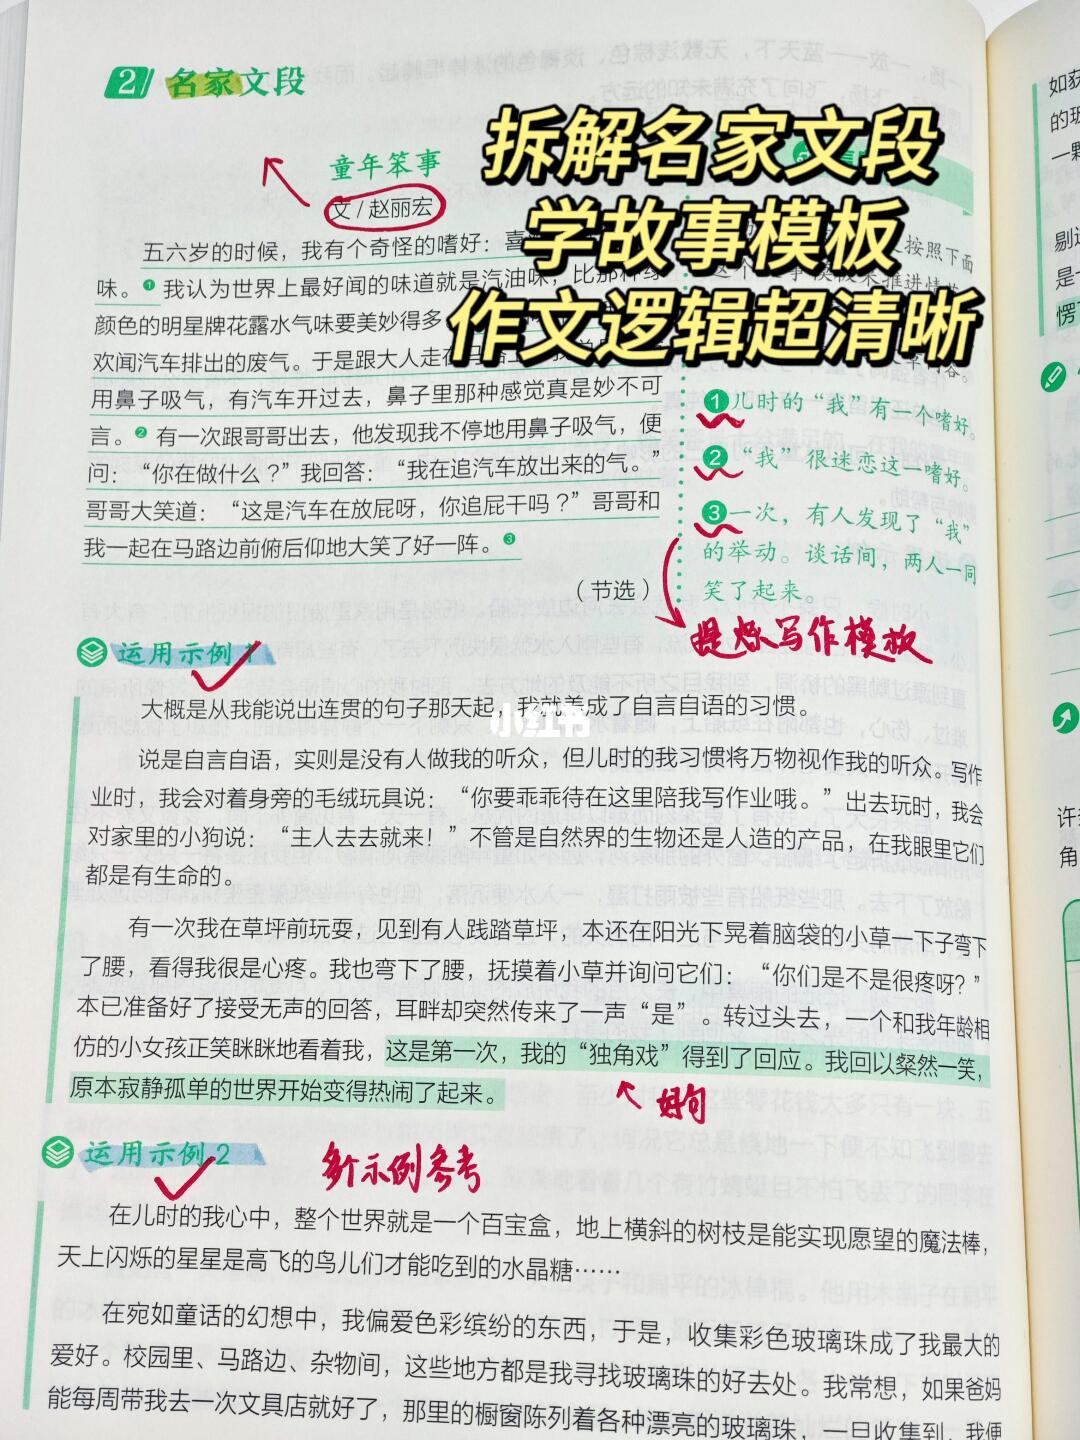 2 名家文段
拆解名家文段
学故事模板
作文逻辑超清晰
童年笨事
文/赵丽宏
五六岁的时候，我有个奇怪的嗜好：喜
味。❶我认为世界上最好闻的味道就是汽油味，比那种绿
颜色的明星牌花露水气味要美妙得多
欢闻汽车排出的废气。于是跟大人走在马路上
用鼻子吸气，有汽车开过去，鼻子里那种感觉真是妙不可
言。❷有一次跟哥哥出去，他发现我不停地用鼻子吸气，便
问：“你在做什么？”我回答：“我在追汽车放出来的气。”
哥哥大笑道：“这是汽车在放屁呀，你追屁干吗？”哥哥和
我一起在马路边前俯后仰地大笑了好一阵。❸
（节选）
按照下面
❶儿时的“我”有一个嗜好。
❷“我”很迷恋这一嗜好。
❸一次，有人发现了“我”
的举动。谈话间，两人一同
笑了起来。
提炼写作模板
运用示例1
大概是从我能说出连贯的句子那天起，我就养成了自言自语的习惯。
小红书
说是自言自语，实则是没有人做我的听众，但儿时的我习惯将万物视作我的听众。写作
业时，我会对着身旁的毛绒玩具说：“你要乖乖待在这里陪我写作业哦。”出去玩时，我会
对家里的小狗说：“主人去去就来！”不管是自然界的生物还是人造的产品，在我眼里它们
都是有生命的。
有一次我在草坪前玩耍，见到有人践踏草坪，本还在阳光下晃着脑袋的小草一下子弯下
了腰，看得我很是心疼。我也弯下了腰，抚摸着小草并询问它们：“你们是不是很疼呀？”
本已准备好了接受无声的回答，耳畔却突然传来了一声“是”。转过头去，一个和我年龄相
仿的小女孩正笑眯眯地看着我，这是第一次，我的“独角戏”得到了回应。我回以粲然一笑，
原本寂静孤单的世界开始变得热闹了起来。
好句
运用示例2
多个示例参考
在儿时的我心中，整个世界就是一个百宝盒，地上横斜的树枝是能实现愿望的魔法棒，
天上闪烁的星星是高飞的鸟儿们才能吃到的水晶糖……
在宛如童话的幻想中，我偏爱色彩缤纷的东西，于是，收集彩色玻璃珠成了我最大的
爱好。校园里、马路边、杂物间，这些地方都是我寻找玻璃珠的好去处。我常想，如果爸妈
能每周带我去一次文具店就好了，那里的橱窗陈列着各种漂亮的玻璃珠，一旦收集到，我便
如获
的玻
一颗
是一
愕
许
角